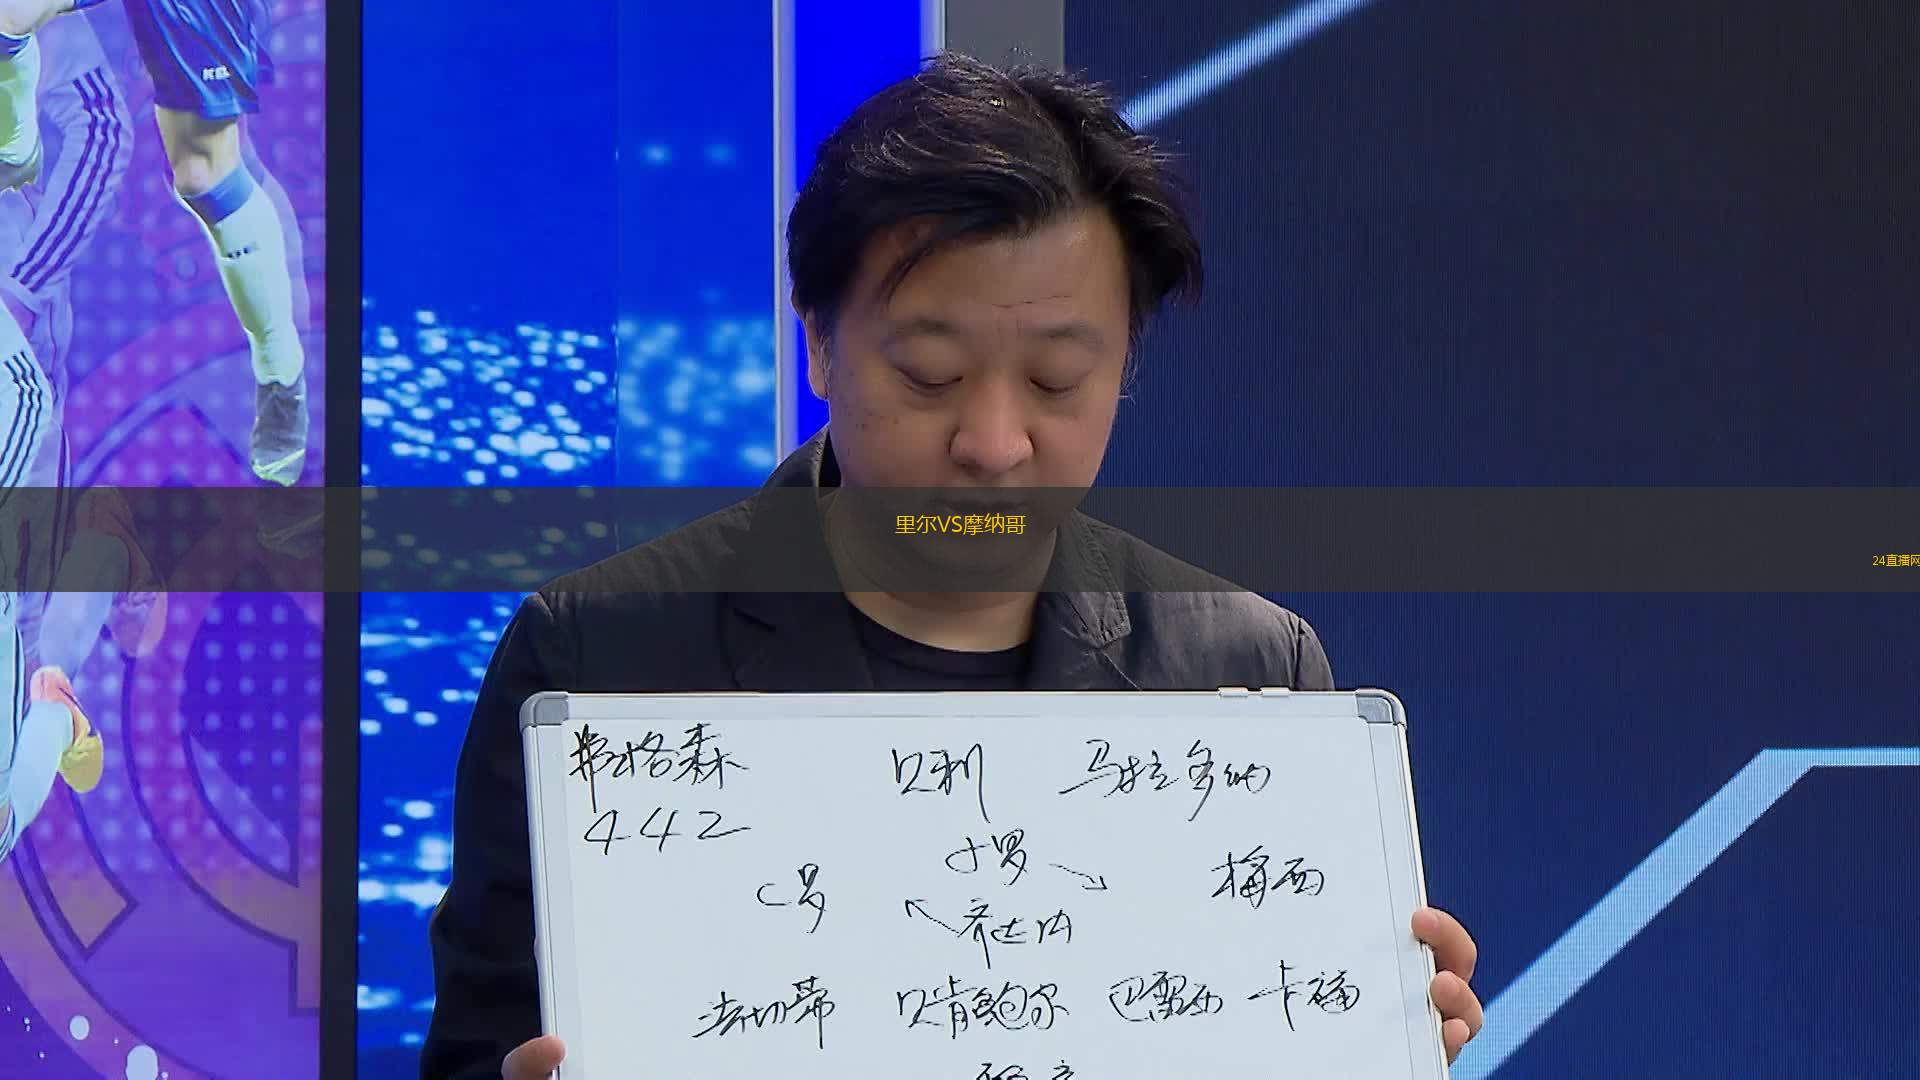 里尔VS摩纳哥
24直播网
弗格森 贝利 马拉多纳
442
小罗
C罗 梅西
齐达内
法切蒂 贝肯鲍尔 巴雷西 卡福